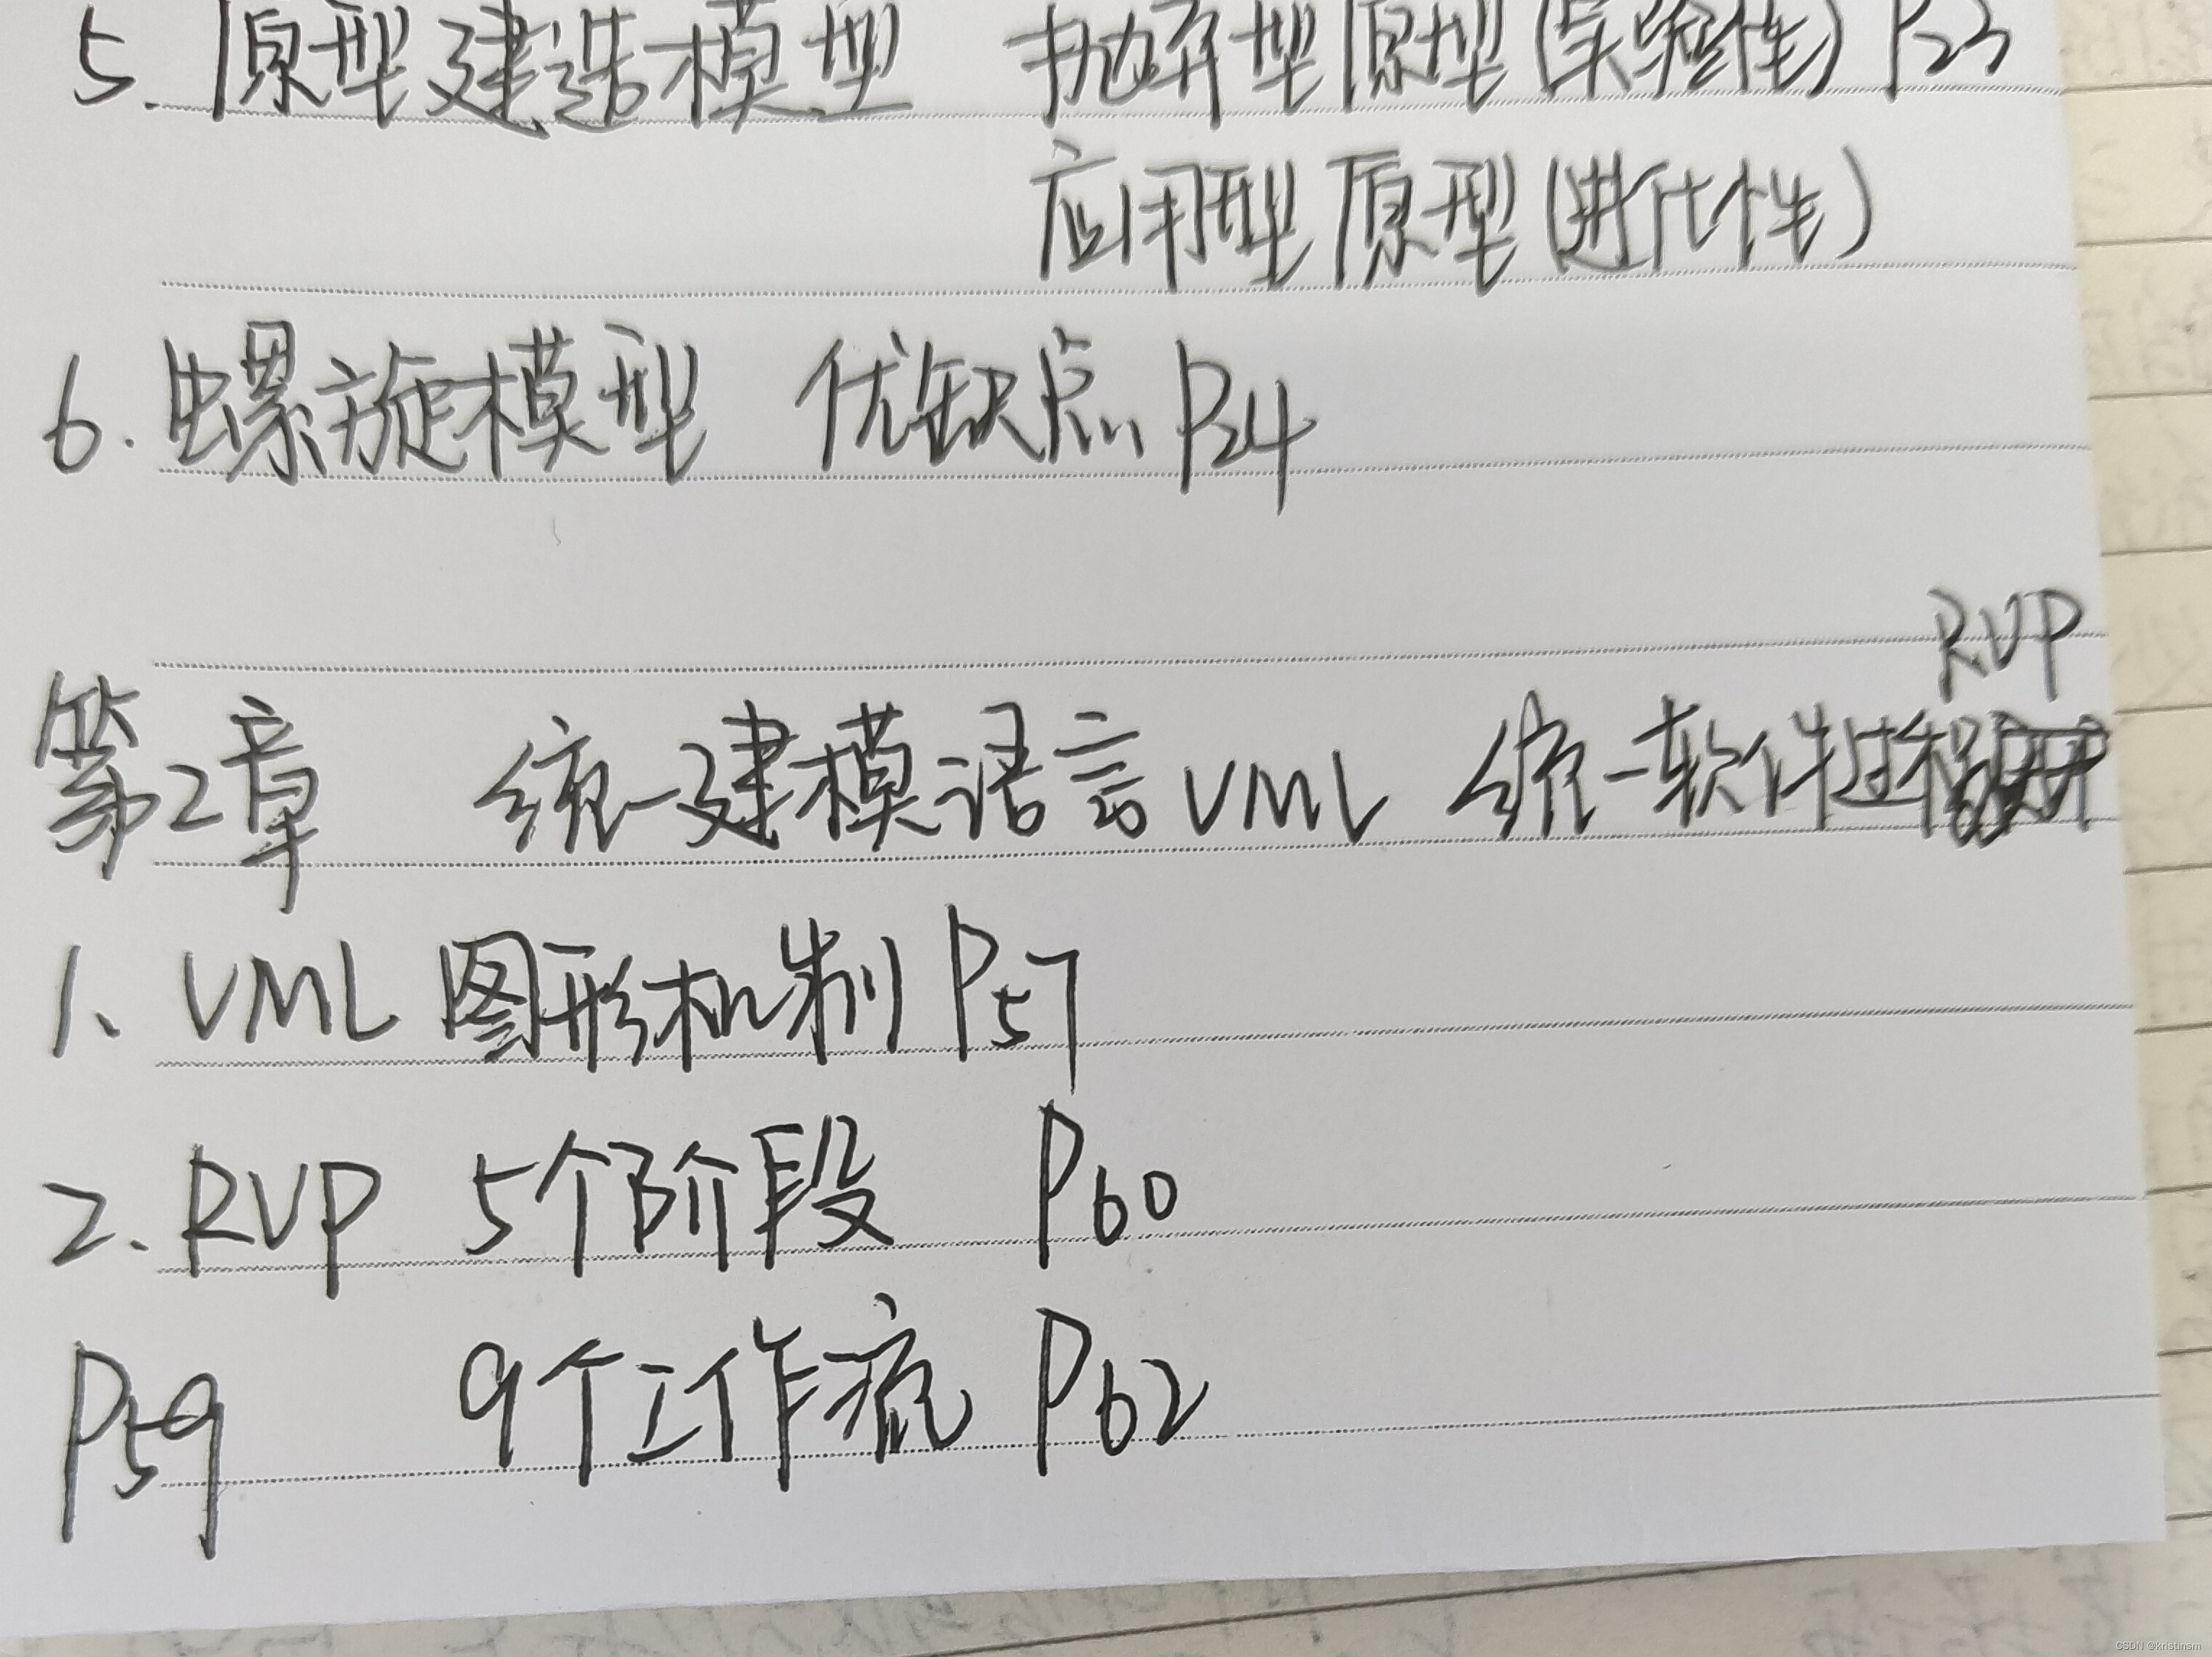 5. 原型建造模型 抛弃型原型(实验性) P23
应用型原型(进化性)
6. 螺旋模型 优缺点 P24
RUP
第2章 统一建模语言UML 统一软件过程
1、UML 图形机制 P57
2. RUP 5个阶段 P60
P59 9个工作流 P62
CSDN @kristinsm